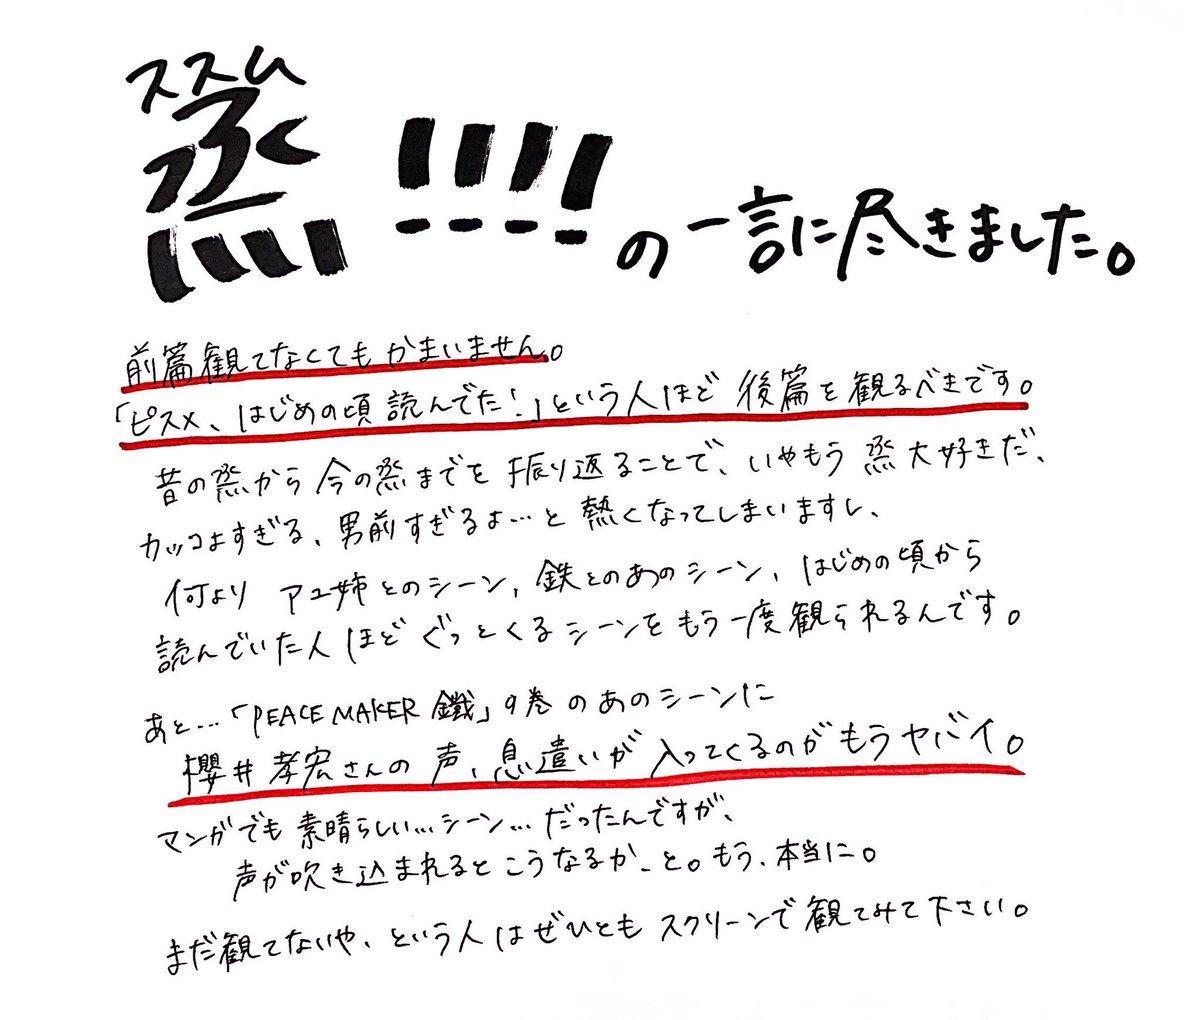 ススム
烝!!!!の一言に尽きました。
前篇観てなくてもかまいません。
「ピスメ、はじめの頃読んでた!」という人ほど後篇を観るべきです。
昔の烝から今の烝までを振り返ることで、いやもう烝大好きだ、
カッコよすぎる、男前すぎるよ…と熱くなってしまいますし、
何よりアユ姉とのシーン、鉄とのあのシーン、はじめの頃から
読んでいた人ほどぐっとくるシーンをもう一度観られるんです。
あと…「PEACE MAKER 鐵」9巻のあのシーンに
櫻井孝宏さんの声、息遣いが入ってくるのがもうヤバイ。
マンガでも素晴らしい…シーン…だったんですが、
声が吹き込まれるとこうなるか、と。もう、本当に。
まだ観てないや、という人はぜひともスクリーンで観てみて下さい。